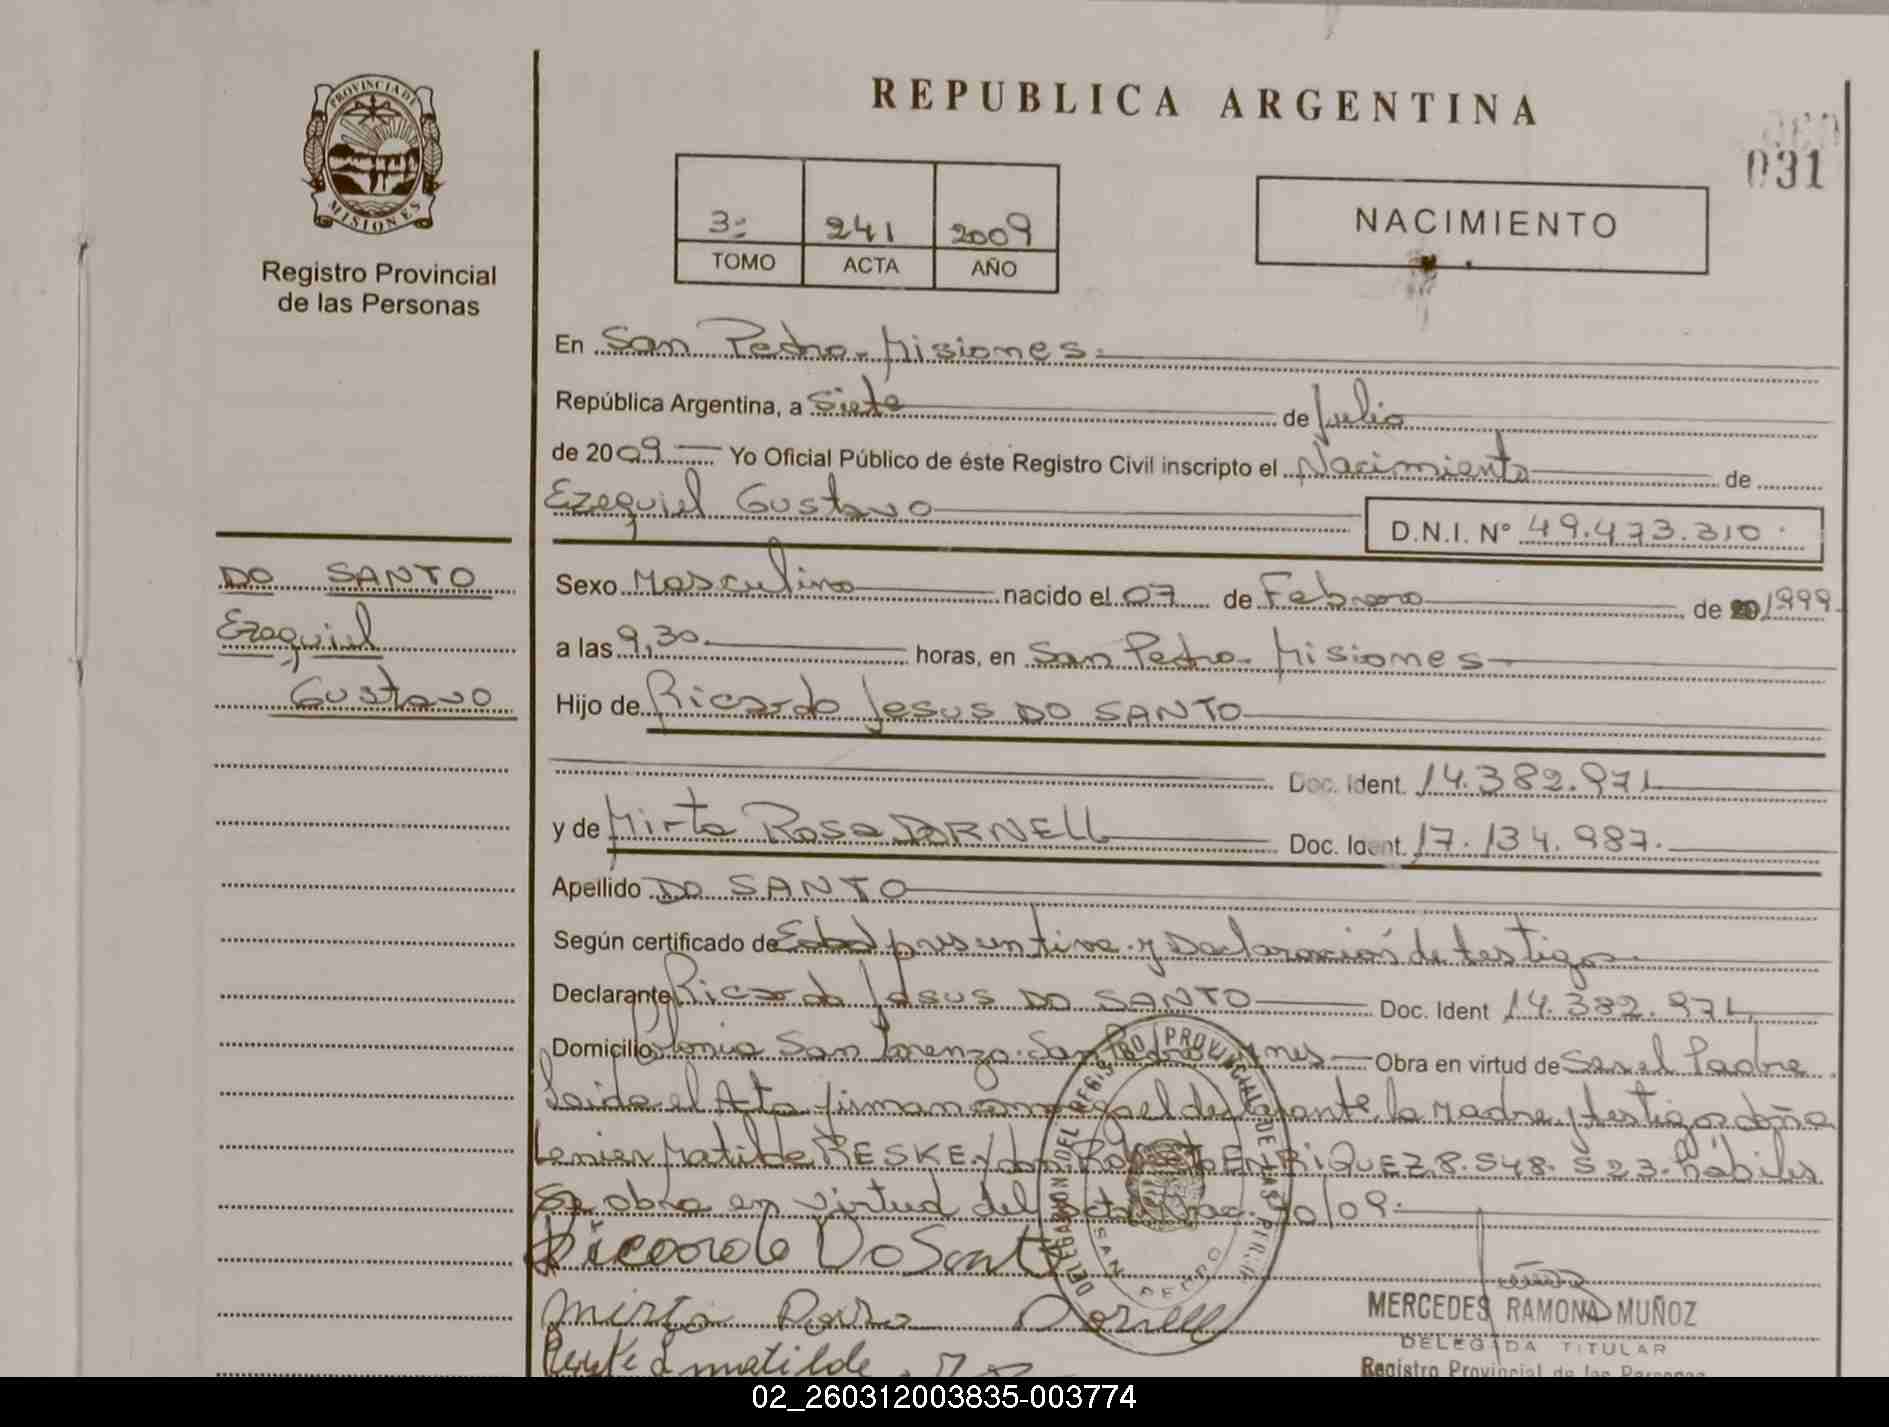 PROVINCIA DE
MISIONES
Registro Provincial
de las Personas
REPUBLICA ARGENTINA
031
3º 241 2009
TOMO ACTA AÑO
NACIMIENTO
En San Pedro - Misiones
República Argentina, a Siete de Julio
de 2009 Yo Oficial Público de éste Registro Civil inscripto el Nacimiento de
Ezequiel Gustavo D.N.I. Nº 49.473.310
DO SANTO
Ezequiel
Gustavo
Sexo Masculino nacido el 07 de Febrero de 1999
a las 9,30 horas, en San Pedro - Misiones
Hijo de Ricardo Jesus DO SANTO
Doc. Ident. 14.382.971
y de Mirta Rosa DORNELL Doc. Ident. 17.134.987.
Apellido DO SANTO
Según certificado de Edad presuntiva y Declaración de testigos
Declarante Ricardo Jesus DO SANTO Doc. Ident 14.382.971
Domicilio Colonia San Lorenzo - San Pedro Mnes Obra en virtud de Ser el Padre
Leida el Acta firman conmigo el declarante, la madre y testigos doña
Matilde RESKE y don Roberto ENRIQUEZ 8.548.523 - hábiles
Se obra en virtud del 70/09.
Ricardo Do Santo
Mirta Dornell
matilde
DELEGACION DEL REGISTRO PROVINCIAL DE LAS PERS.
SAN PEDRO
MERCEDES RAMONA MUÑOZ
DELEGADA TITULAR
Registro Provincial de las Personas
02_260312003835-003774